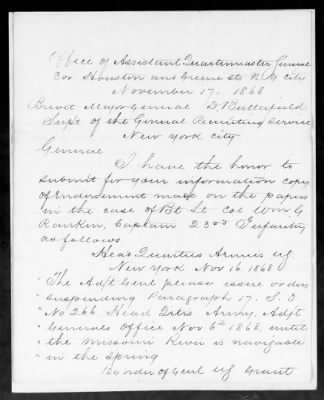 Office of Assistant Quartermaster General
Cor Houston and Greene sts N.Y. City
November 17. 1868
Brevet Major General D. Butterfield
Supt of the General Recruiting Service
New York City
General
I have the honor to
submit for your information copy
of Endorsement made on the papers
in the case of Bt Lt Col Wm G
Rankin, Captain 23rd Infantry
as follows.
Head Quarters Armies US
New York Nov 16, 1868
" The Adjt Genl please issue order
" suspending Paragraph 17. S.O
" No 266. Head Qrtrs Army, Adjt
" Generals Office Nov 6th 1868, until
" the Missouri River is navigable
" in the spring
By order of Genl US Grant